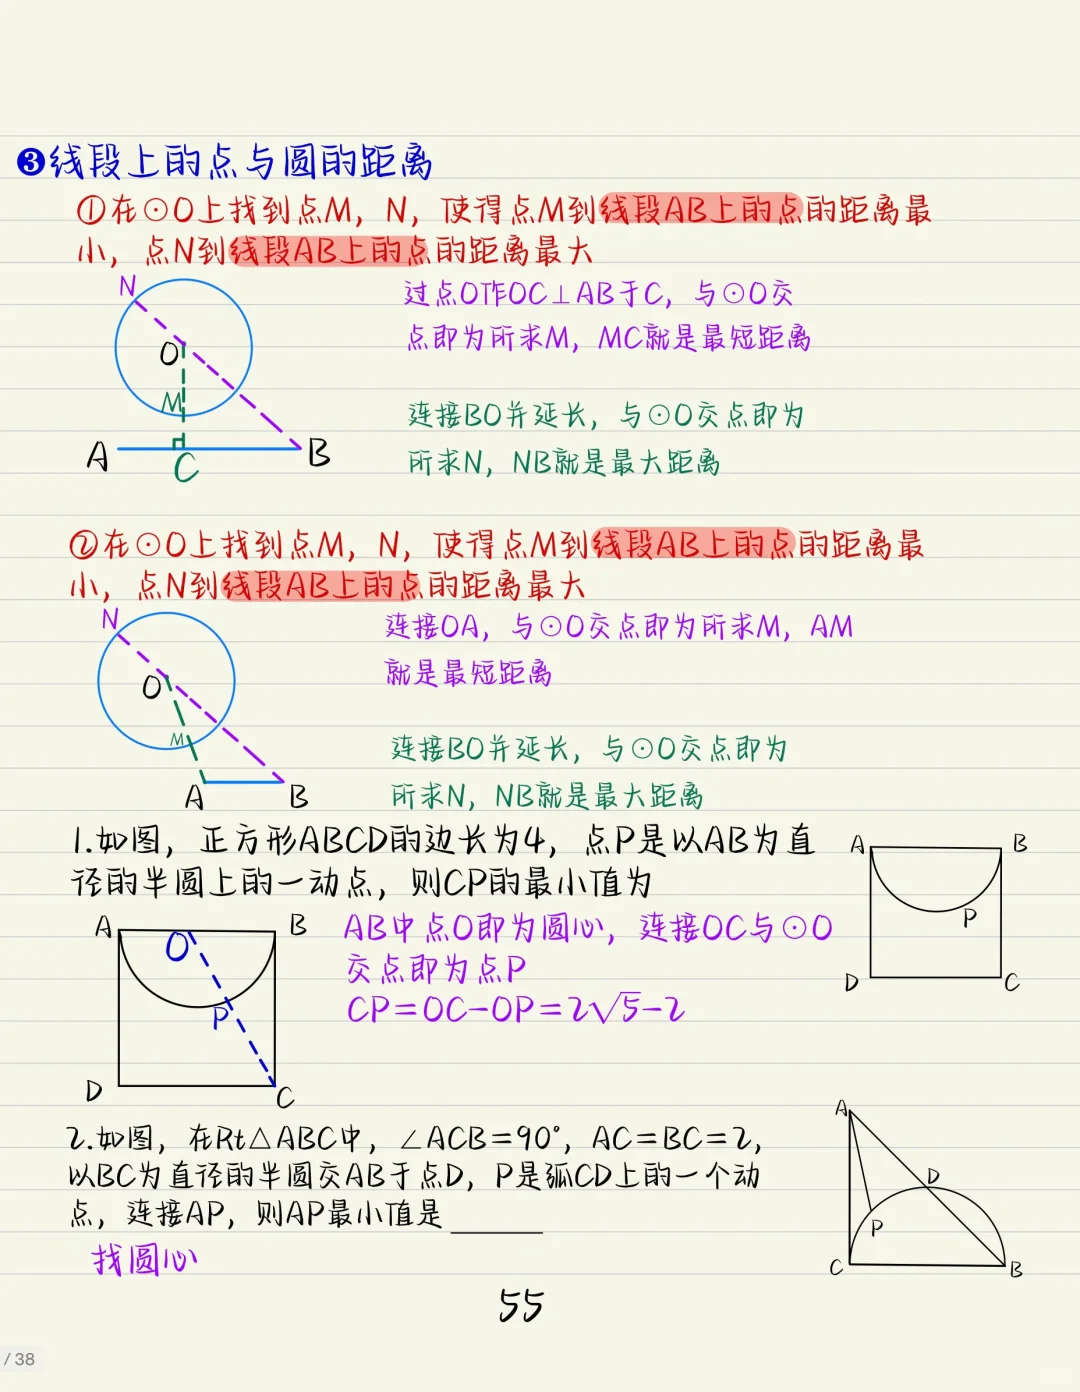 ❸线段上的点与圆的距离
①在⊙O上找到点M，N，使得点M到线段AB上的点的距离最
小，点N到线段AB上的点的距离最大
N
O
M
A
C
B
过点O作OC⊥AB于C，与⊙O交
点即为所求M，MC就是最短距离
连接BO并延长，与⊙O交点即为
所求N，NB就是最大距离
②在⊙O上找到点M，N，使得点M到线段AB上的点的距离最
小，点N到线段AB上的点的距离最大
N
O
M
A
B
连接OA，与⊙O交点即为所求M，AM
就是最短距离
连接BO并延长，与⊙O交点即为
所求N，NB就是最大距离
1.如图，正方形ABCD的边长为4，点P是以AB为直
径的半圆上的一动点，则CP的最小值为
A
B
P
D
C
A
B
O
P
D
C
AB中点O即为圆心，连接OC与⊙O
交点即为点P
CP=OC-OP=2√5-2
2.如图，在Rt△ABC中，∠ACB=90°，AC=BC=2，
以BC为直径的半圆交AB于点D，P是弧CD上的一个动
点，连接AP，则AP最小值是______
A
D
P
C
B
找圆心
55
/ 38